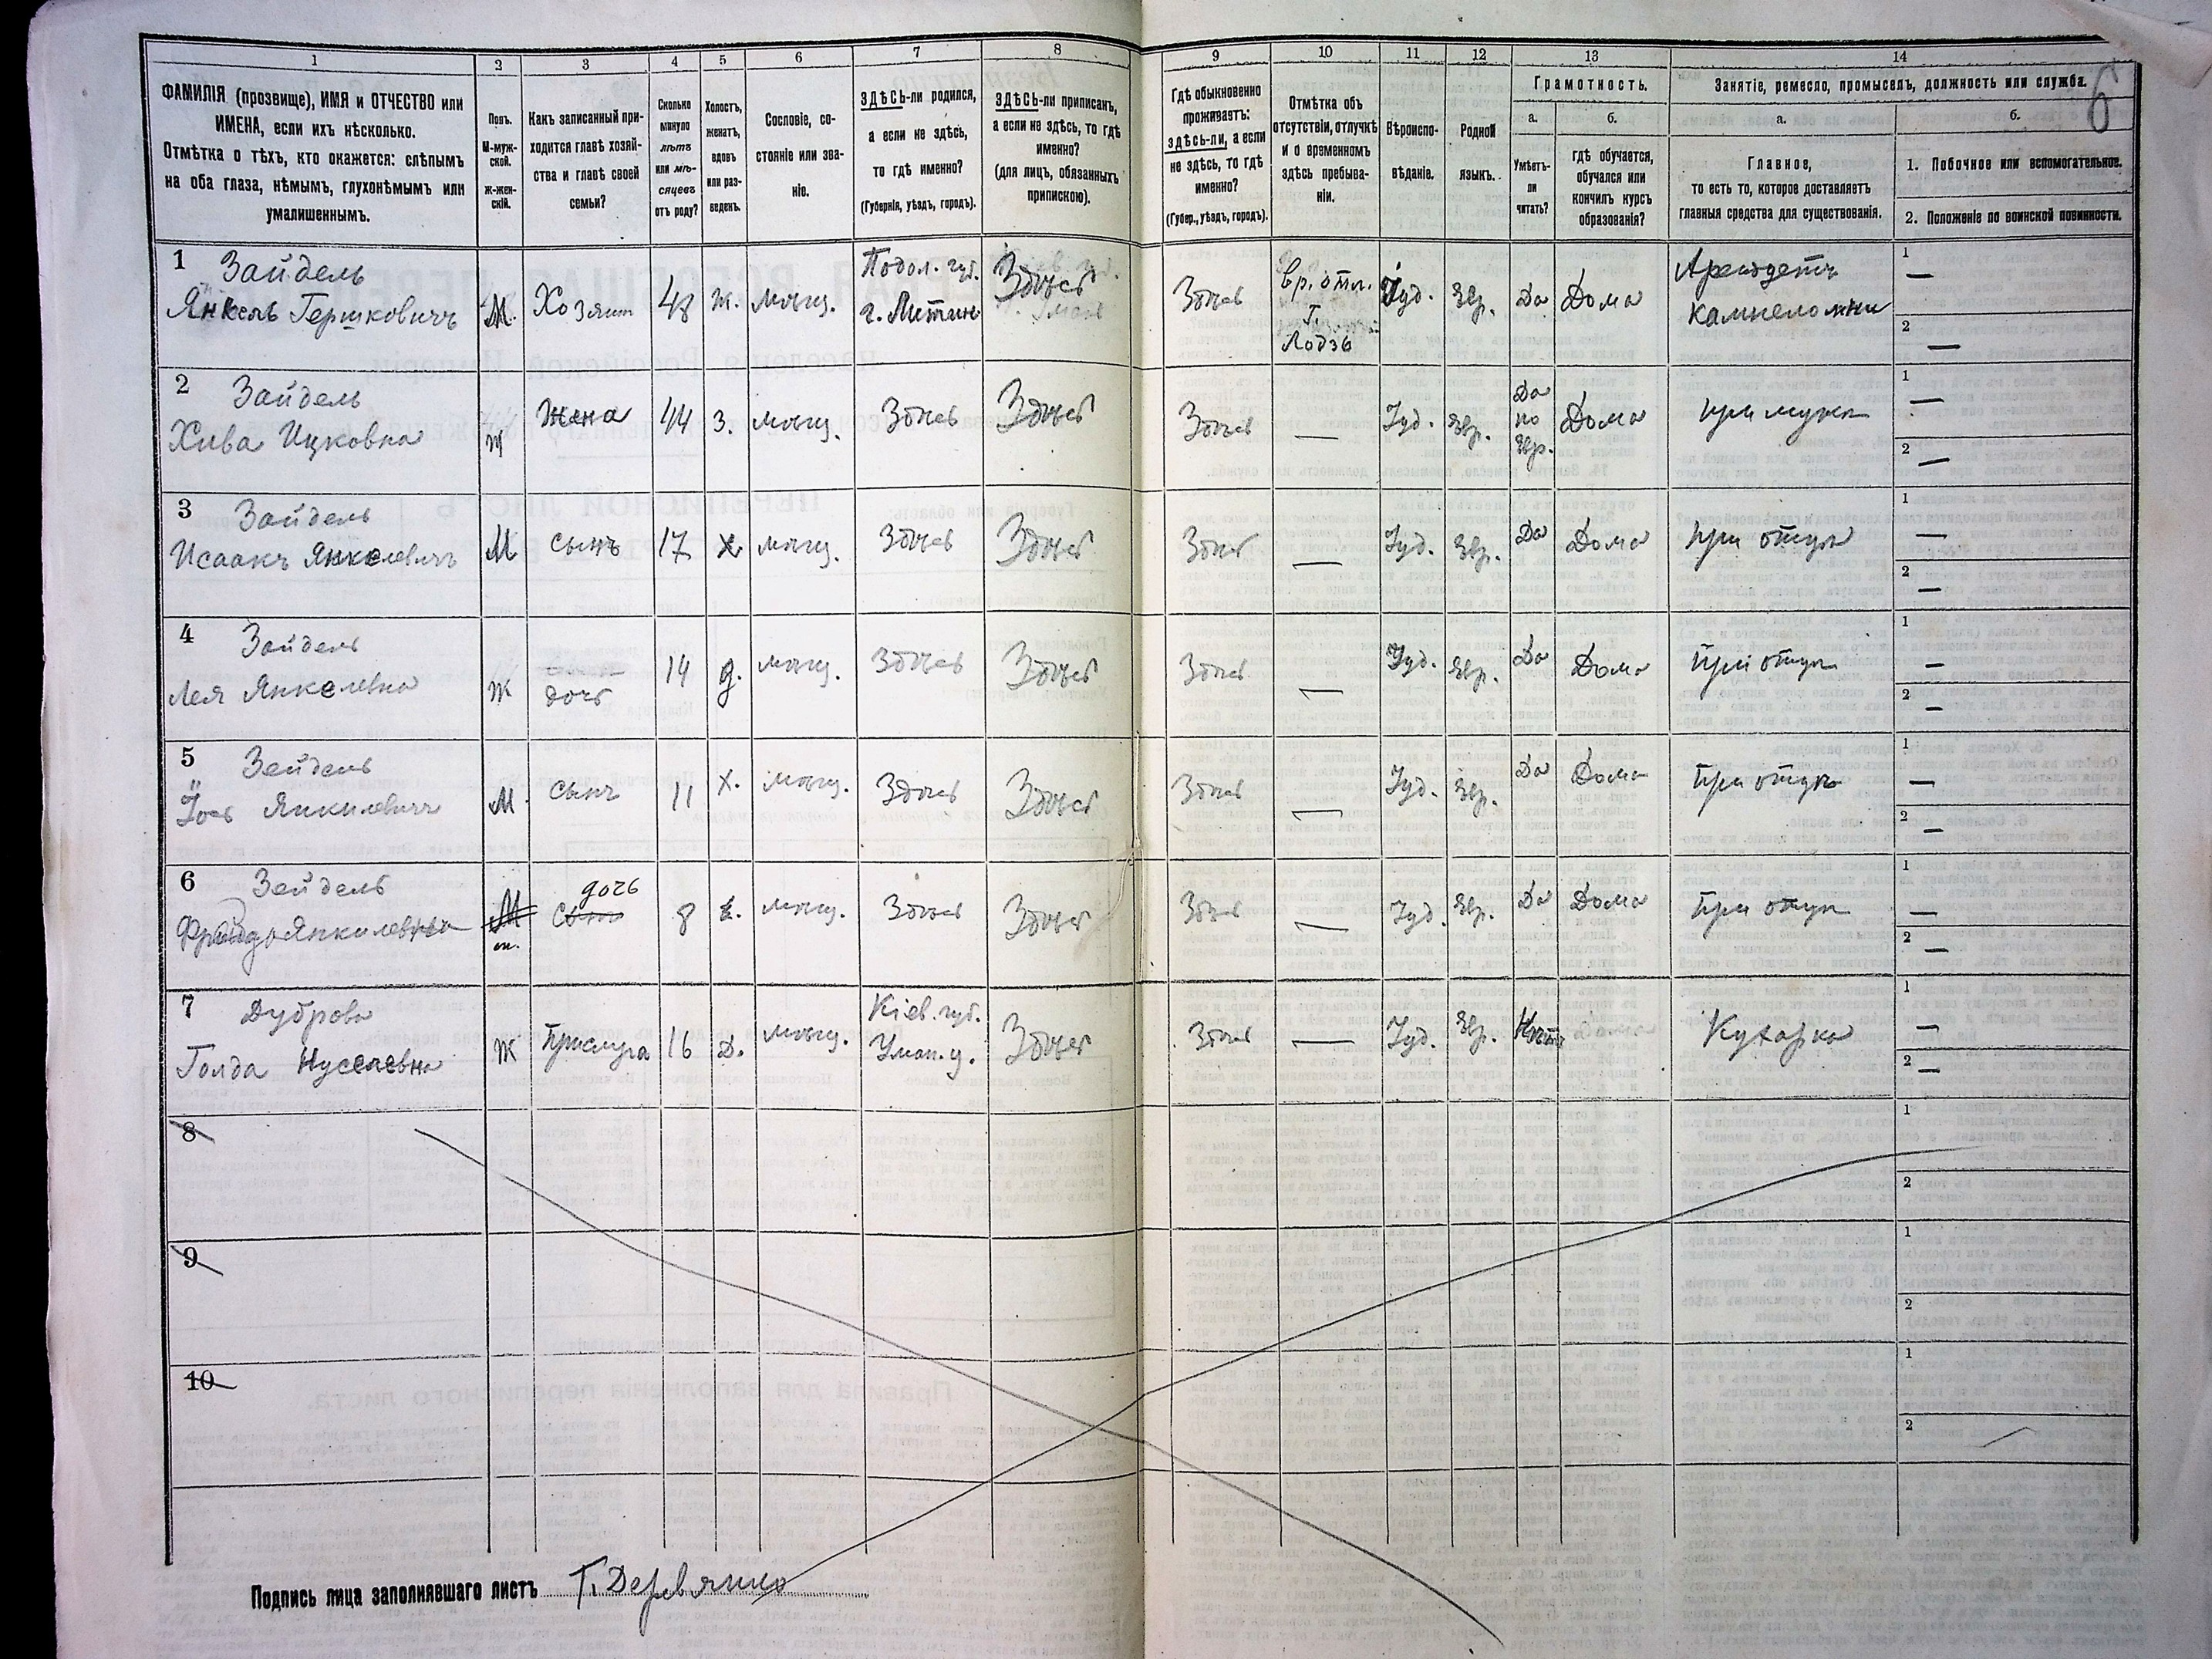 1 2 3 4 5 6 7 8 9 10 11 12 13 14
6
ФАМИЛІЯ (прозвище), ИМЯ и ОТЧЕСТВО или
ИМЕНА, если ихъ нѣсколько.
Отмѣтка о тѣхъ, кто окажется: слѣпымъ
на оба глаза, нѣмымъ, глухонѣмымъ или
умалишеннымъ.
Полъ.
М-муж-
ской.
Ж-жен-
скій.
Какъ записанный при-
ходится главѣ хозяй-
ства и главѣ своей
семьи?
Сколько
минуло
лѣтъ
или мѣ-
сяцевъ
отъ роду?
Холостъ,
женатъ,
вдовъ
или раз-
веденъ.
Сословіе, со-
стояніе или зва-
ніе.
ЗДѢСЬ-ли родился,
а если не здѣсь,
то гдѣ именно?
(Губернія, уѣздъ, городъ).
ЗДѢСЬ-ли приписанъ,
а если не здѣсь, то гдѣ
именно?
(для лицъ, обязанныхъ
припискою).
Гдѣ обыкновенно
проживаетъ:
здѣсь-ли, а если
не здѣсь, то гдѣ
именно?
(Губер., уѣздъ, городъ).
Отмѣтка объ
отсутствіи, отлучкѣ
и о временномъ
здѣсь пребыва-
ніи.
Вѣроиспо-
вѣданіе.
Родной
языкъ.
Грамотность.
а.
Умѣетъ-
ли
читать?
б.
гдѣ обучается,
обучался или
кончилъ курсъ
образованія?
Занятіе, ремесло, промыселъ, должность или служба.
а.
Главное,
то есть то, которое доставляетъ
главныя средства для существованія.
б.
1. Побочное или вспомогательное.
2. Положеніе по воинской повинности.
1 Зайдель
Янкель Гершковичъ
М.
Хозяин
48
ж.
мѣщ.
Подол. губ.
г. Литинъ
Здѣсь
Здѣсь
Вр. отл.
Г.
Лодзь
Іуд.
Евр.
Да
Дома
Арендаторъ
каменоломни
1 —
2 —
2 Зайдель
Хива Ицковна
Ж
Жена
44
З.
мѣщ.
Здѣсь
Здѣсь
Здѣсь
—
Іуд.
Евр.
Да
по
Евр.
Дома
при мужѣ
1 —
2 —
3 Зайдель
Исаакъ Янкелевичъ
М
сынъ
17
х
мѣщ.
Здѣсь
Здѣсь
Здѣсь
—
Іуд.
Евр.
Да
Дома
при отцѣ
1 —
2 —
4 Зайдель
Лея Янкелевна
Ж
дочь
14
д.
мѣщ.
Здѣсь
Здѣсь
Здѣсь
—
Іуд.
Евр.
Да
Дома
при отцѣ
1 —
2 —
5 Зейдель
Іось Янкилевичъ
М
сынъ
11
х.
мѣщ.
Здѣсь
Здѣсь
Здѣсь
—
Іуд.
Евр.
Да
Дома
при отцѣ
1 —
2 —
6 Зейдель
Янкилевна
М
дочь
сынъ
8
мѣщ.
Здѣсь
Здѣсь
Здѣсь
—
Іуд.
Евр.
Да
Дома
при отцѣ
1 —
2 —
7 Дуброва
Голда Нуселевна
Ж
Прислуга
16
Д.
мѣщ.
Кіев. губ.
Уман. у.
Здѣсь
Здѣсь
—
Іуд.
Евр.
Нѣтъ
Дома
Кухарка
1 —
2 —
8
1
2
9
1
2
10
1
2
Подпись лица заполнявшаго листъ Г. Деревянко